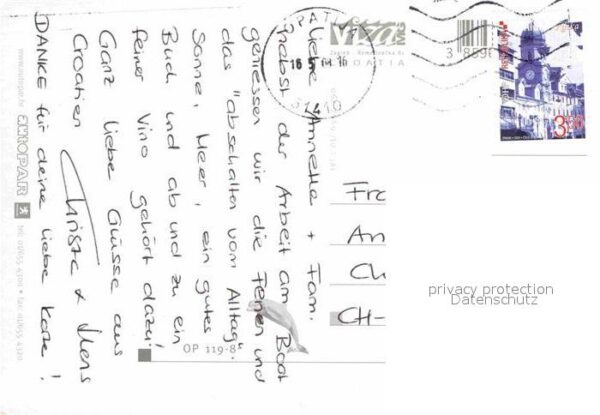 Liebe Annette + Fam.
Nebst der Arbeit am Boot
geniessen wir die Ferien und
das "abschalten vom Alltag".
Sonne, Meer, ein gutes
Buch und ab und zu ein
feiner Vino gehört dazu!
Ganz liebe Grüsse aus
Croatien
Christa & Mens
DANKE für deine liebe Karte!
www.autopar.hr
AUTOPAR
OP 119-8
16 5
21410
Zagreb
CROATIA
3859
3.50
Fra
An
Ch
CH-
privacy protection
Datenschutz